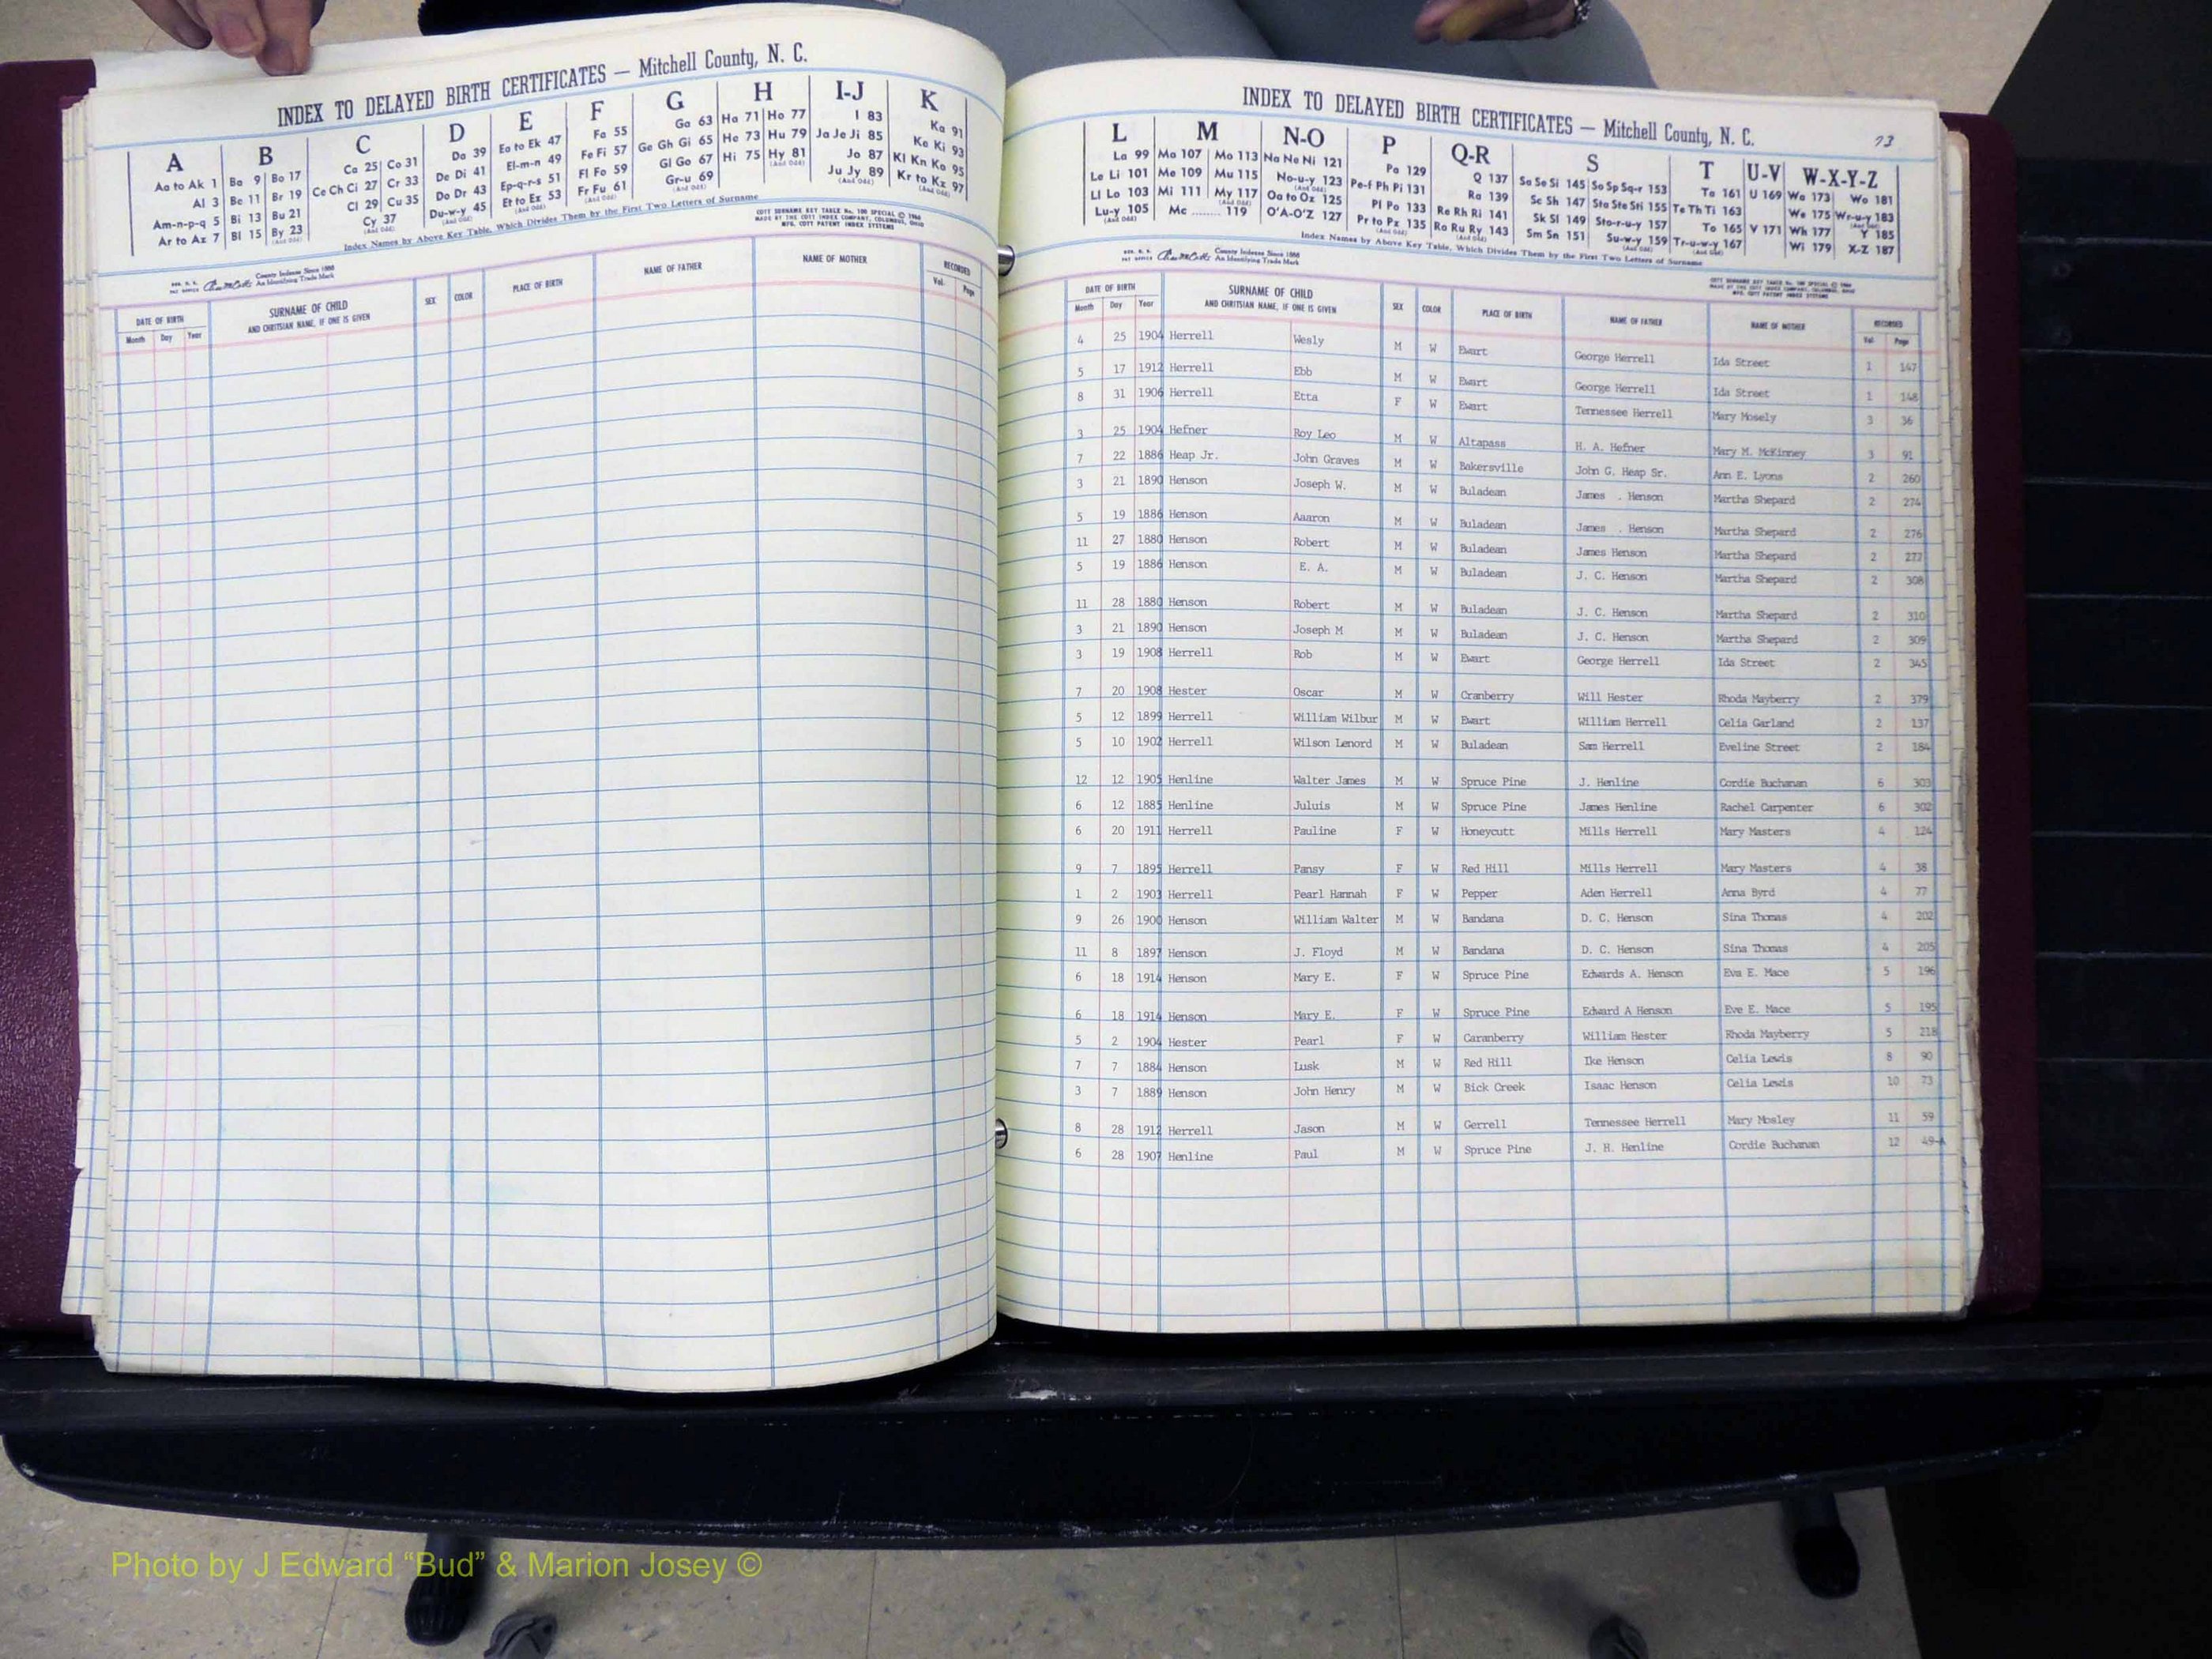 INDEX TO DELAYED BIRTH CERTIFICATES — Mitchell County, N. C.
A B C D E F G H I-J K
Aa to Ak 1 Ba 9 Bo 17 Ca 25 Co 31 Da 39 Ea to Ek 47 Fa 55 Ga 63 Ha 71 Ho 77 I 83 Ka 91
Al 3 Be 11 Br 19 Ce Ch Ci 27 Cr 33 De Di 41 El-m-n 49 Fe Fi 57 Ge Gh Gi 65 He 73 Hu 79 Ja Je Ji 85 Ke Ki 93
Am-n-p-q 5 Bi 13 Bu 21 Cl 29 Cu 35 Do Dr 43 Ep-q-r-s 51 Fl Fo 59 Gl Go 67 Hi 75 Hy 81 Jo 87 Kl Kn Ko 95
Ar to Az 7 Bl 15 By 23 Cy 37 Du-w-y 45 Et to Ez 53 Fr Fu 61 Gr-u 69 Ju Jy 89 Kr to Kz 97
Index Names by Above Key Table, Which Divides Them by the First Two Letters of Surname
COTT SURNAME KEY TABLE No. 100 SPECIAL © 1966
MADE BY THE COTT INDEX COMPANY, COLUMBUS, OHIO
MFG. COTT PATENT INDEX SYSTEMS
County Indexes Since 1888
An Identifying Trade Mark
DATE OF BIRTH SURNAME OF CHILD SEX COLOR PLACE OF BIRTH NAME OF FATHER NAME OF MOTHER RECORDED
Month Day Year AND CHRITSIAN NAME, IF ONE IS GIVEN Vol. Page
INDEX TO DELAYED BIRTH CERTIFICATES — Mitchell County, N. C.
73
L M N-O P Q-R S T U-V W-X-Y-Z
La 99 Ma 107 Mo 113 Na Ne Ni 121 Pa 129 Q 137 Sa Se Si 145 So Sp Sq-r 153 Ta 161 U 169 Wa 173 Wo 181
Le Li 101 Me 109 Mu 115 No-u-y 123 Pe-f Ph Pi 131 Ra 139 Sc Sh 147 Sta Ste Sti 155 Te Th Ti 163 We 175 Wr-u-y 183
Ll Lo 103 Mi 111 My 117 Oa to Oz 125 Pl Po 133 Re Rh Ri 141 Sk Sl 149 Sto-r-u-y 157 To 165 V 171 Wh 177 Y 185
Lu-y 105 Mc ........ 119 O'A-O'Z 127 Pr to Pz 135 Ro Ru Ry 143 Sm Sn 151 Su-w-y 159 Tr-u-w-y 167 Wi 179 X-Z 187
Index Names by Above Key Table, Which Divides Them by the First Two Letters of Surname
County Indexes Since 1888
An Identifying Trade Mark
DATE OF BIRTH SURNAME OF CHILD SEX COLOR PLACE OF BIRTH NAME OF FATHER NAME OF MOTHER RECORDED
Month Day Year AND CHRITSIAN NAME, IF ONE IS GIVEN Vol. Page
4 25 1904 Herrell Wesly M W Ewart George Herrell Ida Street 1 147
5 17 1912 Herrell Ebb M W Ewart George Herrell Ida Street 1 148
8 31 1906 Herrell Etta F W Ewart Tennessee Herrell Mary Mosely 3 36
3 25 1904 Hefner Roy Leo M W Altapass H. A. Hefner Mary M. McKinney 3 91
7 22 1886 Heap Jr. John Graves M W Bakersville John G. Heap Sr. Ann E. Lyons 2 260
3 21 1890 Henson Joseph W. M W Buladean James . Henson Martha Shepard 2 274
5 19 1886 Henson Aaaron M W Buladean James . Henson Martha Shepard 2 276
11 27 1880 Henson Robert M W Buladean James Henson Martha Shepard 2 277
5 19 1886 Henson E. A. M W Buladean J. C. Henson Martha Shepard 2 308
11 28 1880 Henson Robert M W Buladean J. C. Henson Martha Shepard 2 310
3 21 1890 Henson Joseph M M W Buladean J. C. Henson Martha Shepard 2 309
3 19 1908 Herrell Rob M W Ewart George Herrell Ida Street 2 345
7 20 1908 Hester Oscar M W Cranberry Will Hester Rhoda Mayberry 2 379
5 12 1899 Herrell William Wilbur M W Ewart William Herrell Celia Garland 2 137
5 10 1902 Herrell Wilson Lenord M W Buladean Sam Herrell Eveline Street 2 184
12 12 1905 Henline Walter James M W Spruce Pine J. Henline Cordie Buchanan 6 303
6 12 1885 Henline Juluis M W Spruce Pine James Henline Rachel Carpenter 6 302
6 20 1911 Herrell Pauline F W Honeycutt Mills Herrell Mary Masters 4 124
9 7 1895 Herrell Pansy F W Red Hill Mills Herrell Mary Masters 4 38
1 2 1903 Herrell Pearl Hannah F W Pepper Aden Herrell Anna Byrd 4 77
9 26 1900 Henson William Walter M W Bandana D. C. Henson Sina Thomas 4 202
11 8 1897 Henson J. Floyd M W Bandana D. C. Henson Sina Thomas 4 205
6 18 1914 Henson Mary E. F W Spruce Pine Edwards A. Henson Eva E. Mace 5 196
6 18 1914 Henson Mary E. F W Spruce Pine Edward A Henson Eve E. Mace 5 195
5 2 1904 Hester Pearl F W Caranberry William Hester Rhoda Mayberry 5 218
7 7 1884 Henson Lusk M W Red Hill Ike Henson Celia Lewis 8 90
3 7 1889 Henson John Henry M W Bick Creek Isaac Henson Celia Lewis 10 73
8 28 1912 Herrell Jason M W Gerrell Tennessee Herrell Mary Mosley 11 59
6 28 1907 Henline Paul M W Spruce Pine J. H. Henline Cordie Buchanan 12 49-A
Photo by J Edward “Bud” & Marion Josey ©